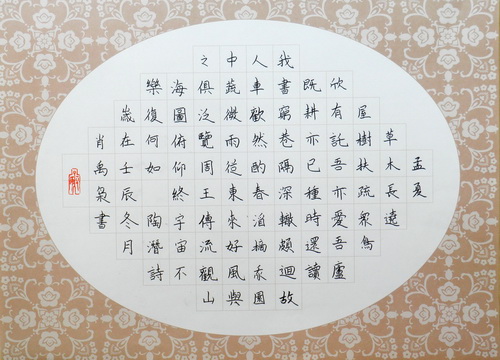 孟夏
草木長遶
屋樹扶疏眾鳥
欣有託吾亦愛吾廬
既耕亦已種時還讀
我書窮巷隔深轍頗迴故
人車歡然酌春酒摘我園
中蔬微雨從東來好風與
之俱泛覽周王傳流觀山
海圖俯仰終宇宙不
樂復何如 陶潛詩
歲在壬辰冬月
肖禹枭書